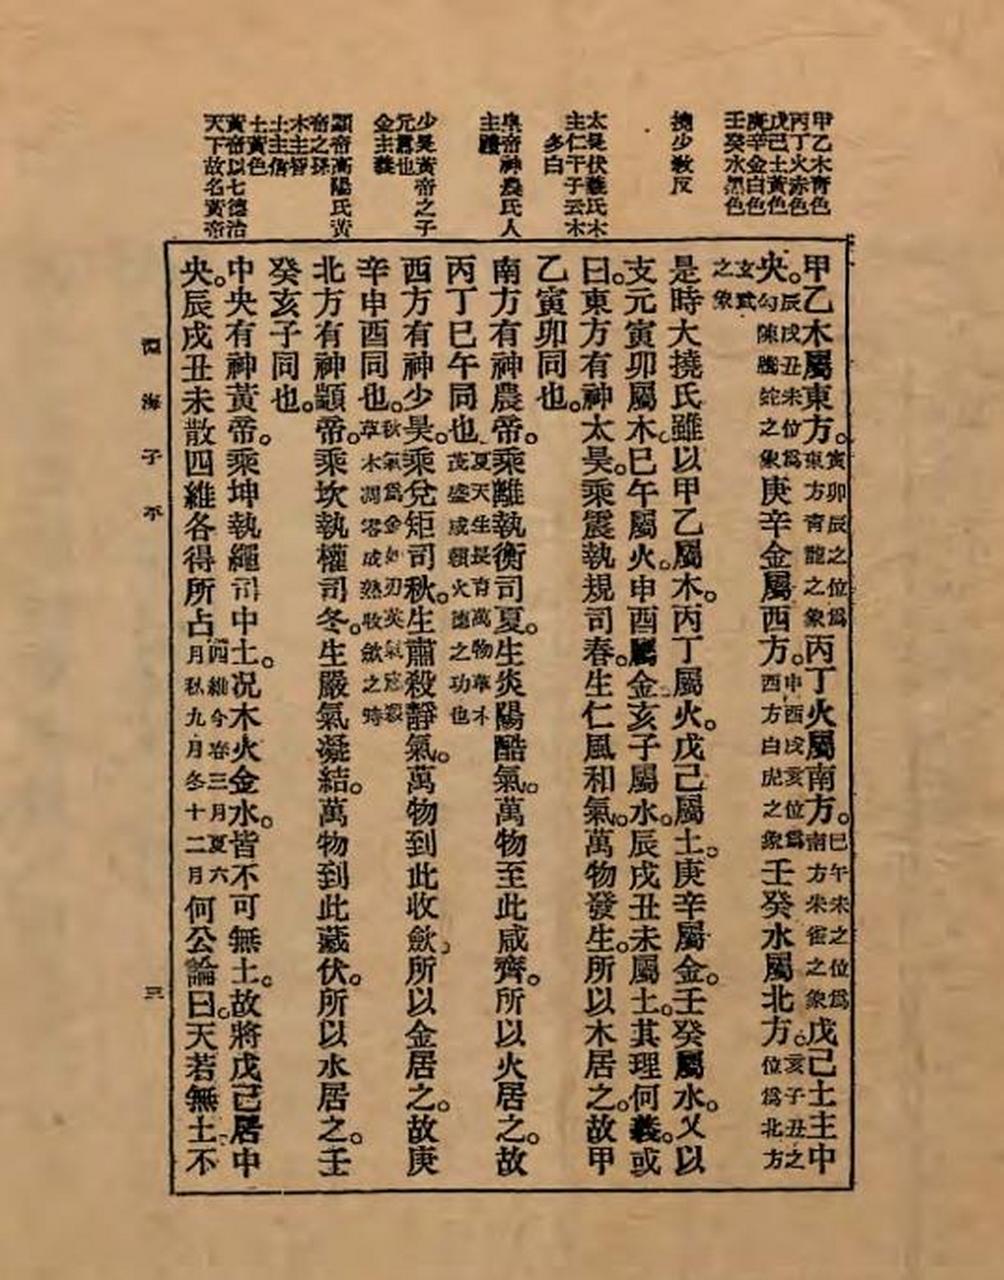 甲乙木靑色
丙丁火赤色
戊己土黃色
庚辛金白色
壬癸水黑色
撓少敎反
太昊伏羲氏木
主仁干子云木
多白
帝神農氏人
主禮
少昊黃帝之子
元囂也
金主義
顓帝高陽氏黃
帝之孫
木主智
土主信
土黃色
黃帝以七德治
天下故名黃帝
甲乙木屬東方。寅卯辰之位爲東方靑龍之象丙丁火屬南方。巳午未之位爲南方朱雀之象戊己土主中
央。辰戌丑未位爲勾陳騰蛇之象庚辛金屬西方。申酉戌亥位爲西方白虎之象壬癸水屬北方。亥子丑之位爲北方
玄武之象
是時大撓氏雖以甲乙屬木。丙丁屬火。戊己屬土。庚辛屬金。壬癸屬水。又以
支元寅卯屬木。巳午屬火。申酉屬金。亥子屬水。辰戌丑未屬土。其理何義。或
曰。東方有神太昊。乘震執規司春。生仁風和氣。萬物發生。所以木居之。故甲
乙寅卯同也。
南方有神農帝。乘離執衡司夏。生炎陽酷氣。萬物至此咸齊。所以火居之。故
丙丁巳午同也。夏天生長育萬物草木茂盛成賴火德之功也
西方有神少昊。乘兌矩司秋。生肅殺靜氣。萬物到此收斂。所以金居之。故庚
辛申酉同也。秋氣爲金如刃英氣寇殺草木凋零成熟收斂之時
北方有神顓帝。乘坎執權司冬。生嚴氣凝結。萬物到此藏伏。所以水居之。壬
癸亥子同也。
中央有神黃帝。乘坤執繩司中土。况木火金水。皆不可無土。故將戊己居中
央。辰戌丑未散四維各得所占四維今春三月夏六月秋九月冬十二月何公論曰。天若無土、不
淵海子平
三